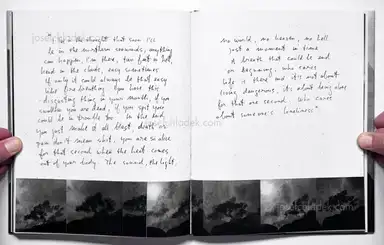 be in the northern
can happen,
head in the clouds, easy sometimes
If only it could always be that easy
like fire breathing. You have this
disgusting thing in your mouth, if you
swallow you are dead, if you spit you
could be in trouble too. In the end,
you just make it all blast, death or
pain don't mean shit, you are so alive
for that second when the heat comes
out of your body. The sound, the light,
no world, no heaven, no hell
just a moment in time
A breath that could be end
or beginning, who cares
life is there and it's not about
living dangerous, it's about being alive
for that one second. Who cares
about someone's loneliness"
josefchladek.com